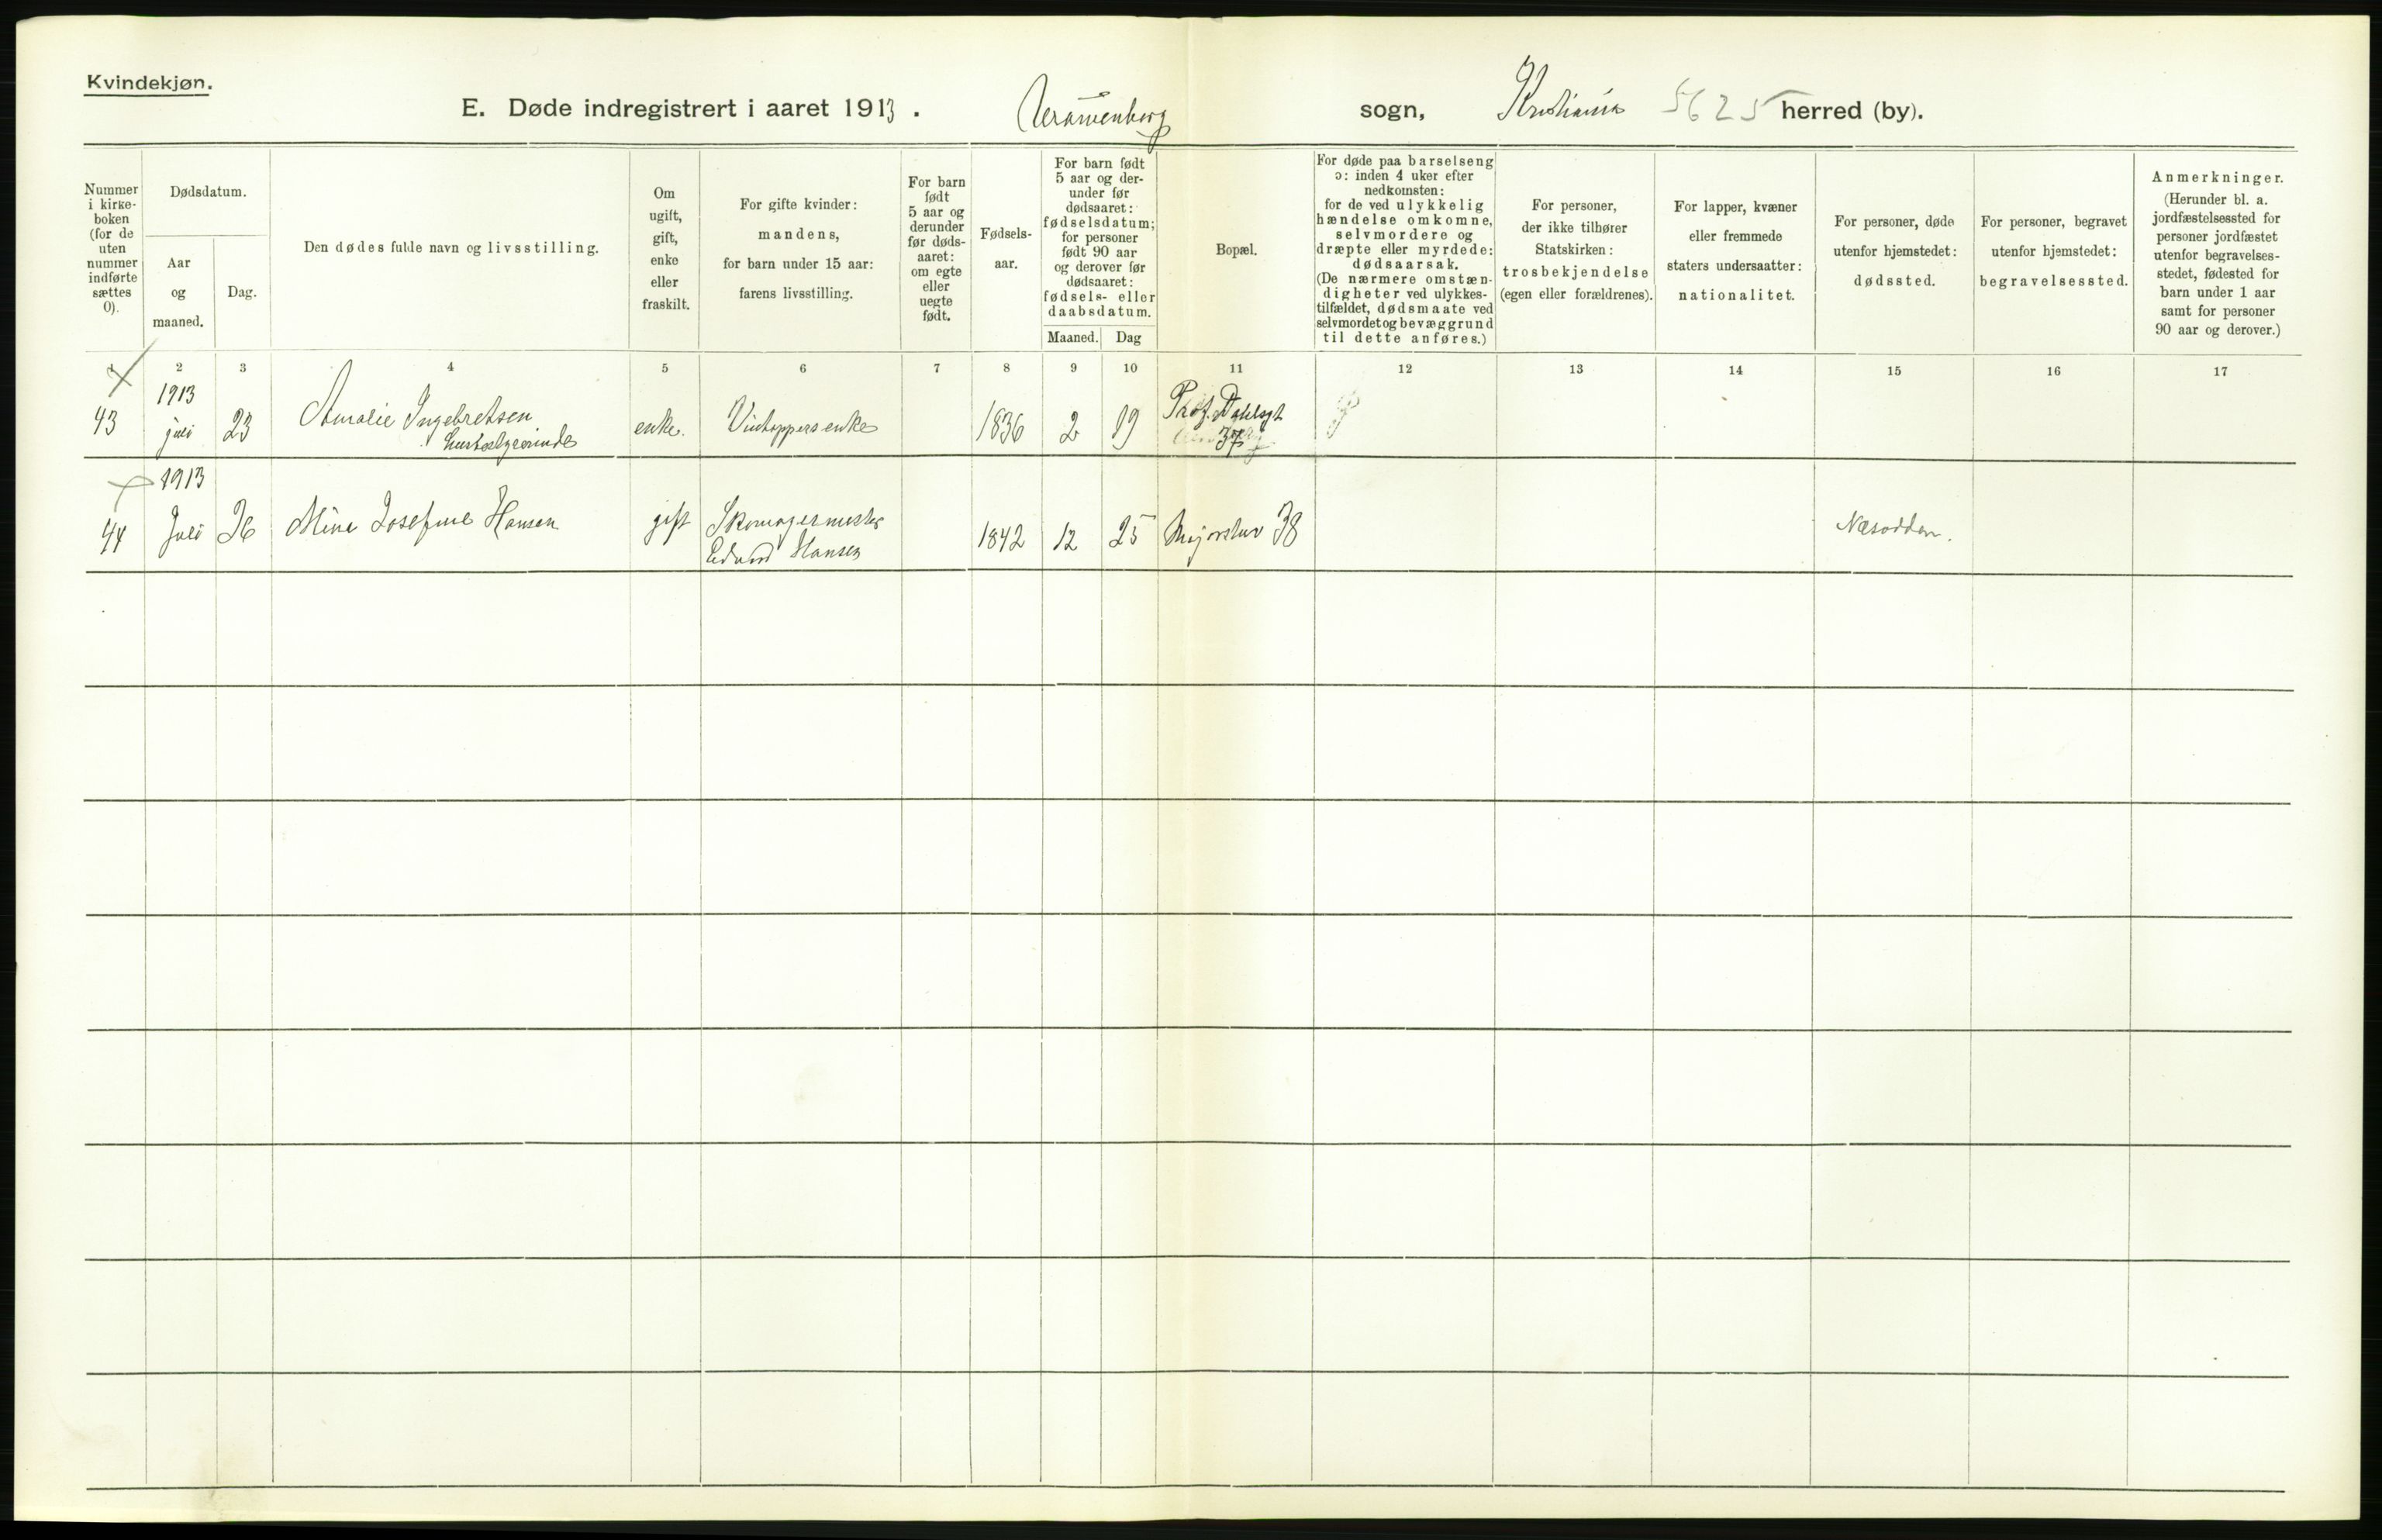 Kvindekjøn.
E. Døde indregistrert i aaret 1913. Uranienborg sogn, Kristiania 5625 herred (by).
Nummer i kirke-boken (for de uten nummer indførte sættes 0).
Dødsdatum.
Aar og maaned.
Dag.
Den dødes fulde navn og livsstilling.
Om ugift, gift, enke eller fraskilt.
For gifte kvinder: mandens, for barn under 15 aar: farens livsstilling.
For barn født 5 aar og derunder før døds-aaret: om egte eller uegte født.
Fødsels-aar.
For barn født 5 aar og der-under før dødsaaret: fødselsdatum; for personer født 90 aar og derover før dødsaaret: fødsels- eller daabsdatum.
Maaned. Dag
Bopæl.
For døde paa barselseng ɔ: inden 4 uker efter nedkomsten: for de ved ulykkelig hændelse omkomne, selvmordere og dræpte eller myrdede: dødsaarsak. (De nærmere omstæn-digheter ved ulykkes-tilfældet, dødsmaate ved selvmordet og bevæggrund til dette anføres.)
For personer, der ikke tilhører Statskirken: trosbekjendelse (egen eller forældrenes).
For lapper, kvæner eller fremmede staters undersaatter: nationalitet.
For personer, døde utenfor hjemstedet: dødssted.
For personer, begravet utenfor hjemstedet: begravelsessted.
Anmerkninger. (Herunder bl. a. jordfæstelsessted for personer jordfæstet utenfor begravelses-stedet, fødested for barn under 1 aar samt for personer 90 aar og derover.)
1 2 3 4 5 6 7 8 9 10 11 12 13 14 15 16 17
1913
43 juli 23 Amalie Ingebretsen enke. Vintappersenke 1836 2 19 Prof. Dahlsgt 37
husbestyrerinde
1913
44 Juli 26 Mina Josefine Hansen gift Skomagermester 1842 12 25 Majorstuv 38 Næsodden.
Edvard Hansen